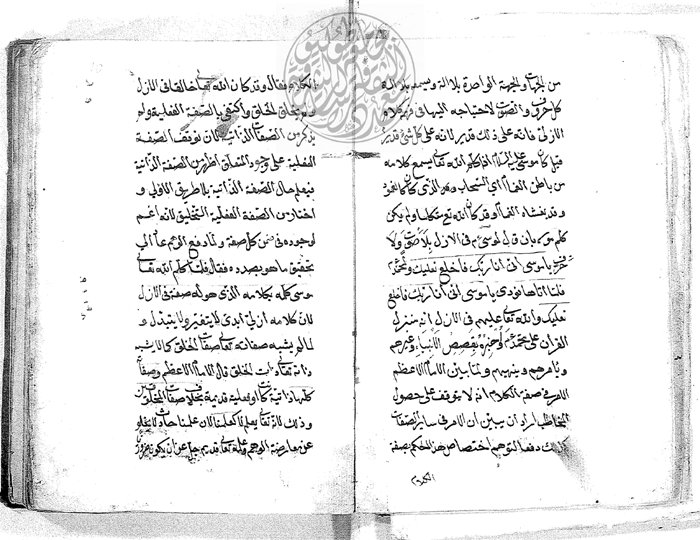 من الجهات والجهة الواحدة بلا آلة ويسمع بلا آلة
كل حرف والصوت لاحتياجه اليها في فهم كلام
الازلي فانه على ذلك قدير لانه على كل شئ قدير
قيل كان موسى عليه السلام اذا كلم الله تعالى يسمع كلامه
من باطن الغمام اي السحاب وهو الذي كان كالعمود
وقد يغشاه الغمام وقد كان الله تعالى متكلما ولم يكن
كلم موسى بان قال لموسى م في الازل بلا صوت ولا
حرف يا موسى اني انا ربك فاخلع نعليك
فلما اتاها نودي يا موسى اني انا ربك فاخلع
نعليك والله تعالى عليم في الازل انه منزل
القرآن على محمد م واخبره بقصص الانبياء وغيرهم
ويأمرهم وينهيهم ولما بين الامام الاعظم
الامر في صفة الكلام انه لا يتوقف على حصول
المخاطب اراد ان يبين ان الامر في سائر الصفات
كذلك دفعا لتوهم اختصاص هذا الحكم بصفة
الكلام
الكلام فقال وقد كان الله تعالى خالقا في الازل
ولم يخلق الخلق واكتفى بالصفة الفعلية ولم
يذكر من الصفات الذاتية لان توقف الصفة
الفعلية على وجود المتعلق اظهر من الصفة الذاتية
فيعلم حال الصفة الذاتية بالطريق الاولى و
اختار من الصفة الفعلية التخليق لانه اعم
لوجوده في ضمن كل صفة ولما دفع الوهم عاد الى
تحقيق ما هو بصدده فقال فلما كلم الله تعالى
موسى كلمه بكلامه الذي هو له صفة في الازل
لان كلامه ازلي ابدي لا يتغير ولا يتبدل و
لما لم يشبه صفاته تعالى صفات الخلق كما لا يشبه
ذاته تعالى ذات الخلق قال الامام الاعظم وصفاته
كلها ذاتية كانت او فعلية قديمة بخلاف صفات المخلوقين
وذلك لانه تعالى يعلم لا كعلمنا لان علمنا حادث لا يخلو
عن معارضة الوهم وعلمه تعالى قديم جل عن ان يكون